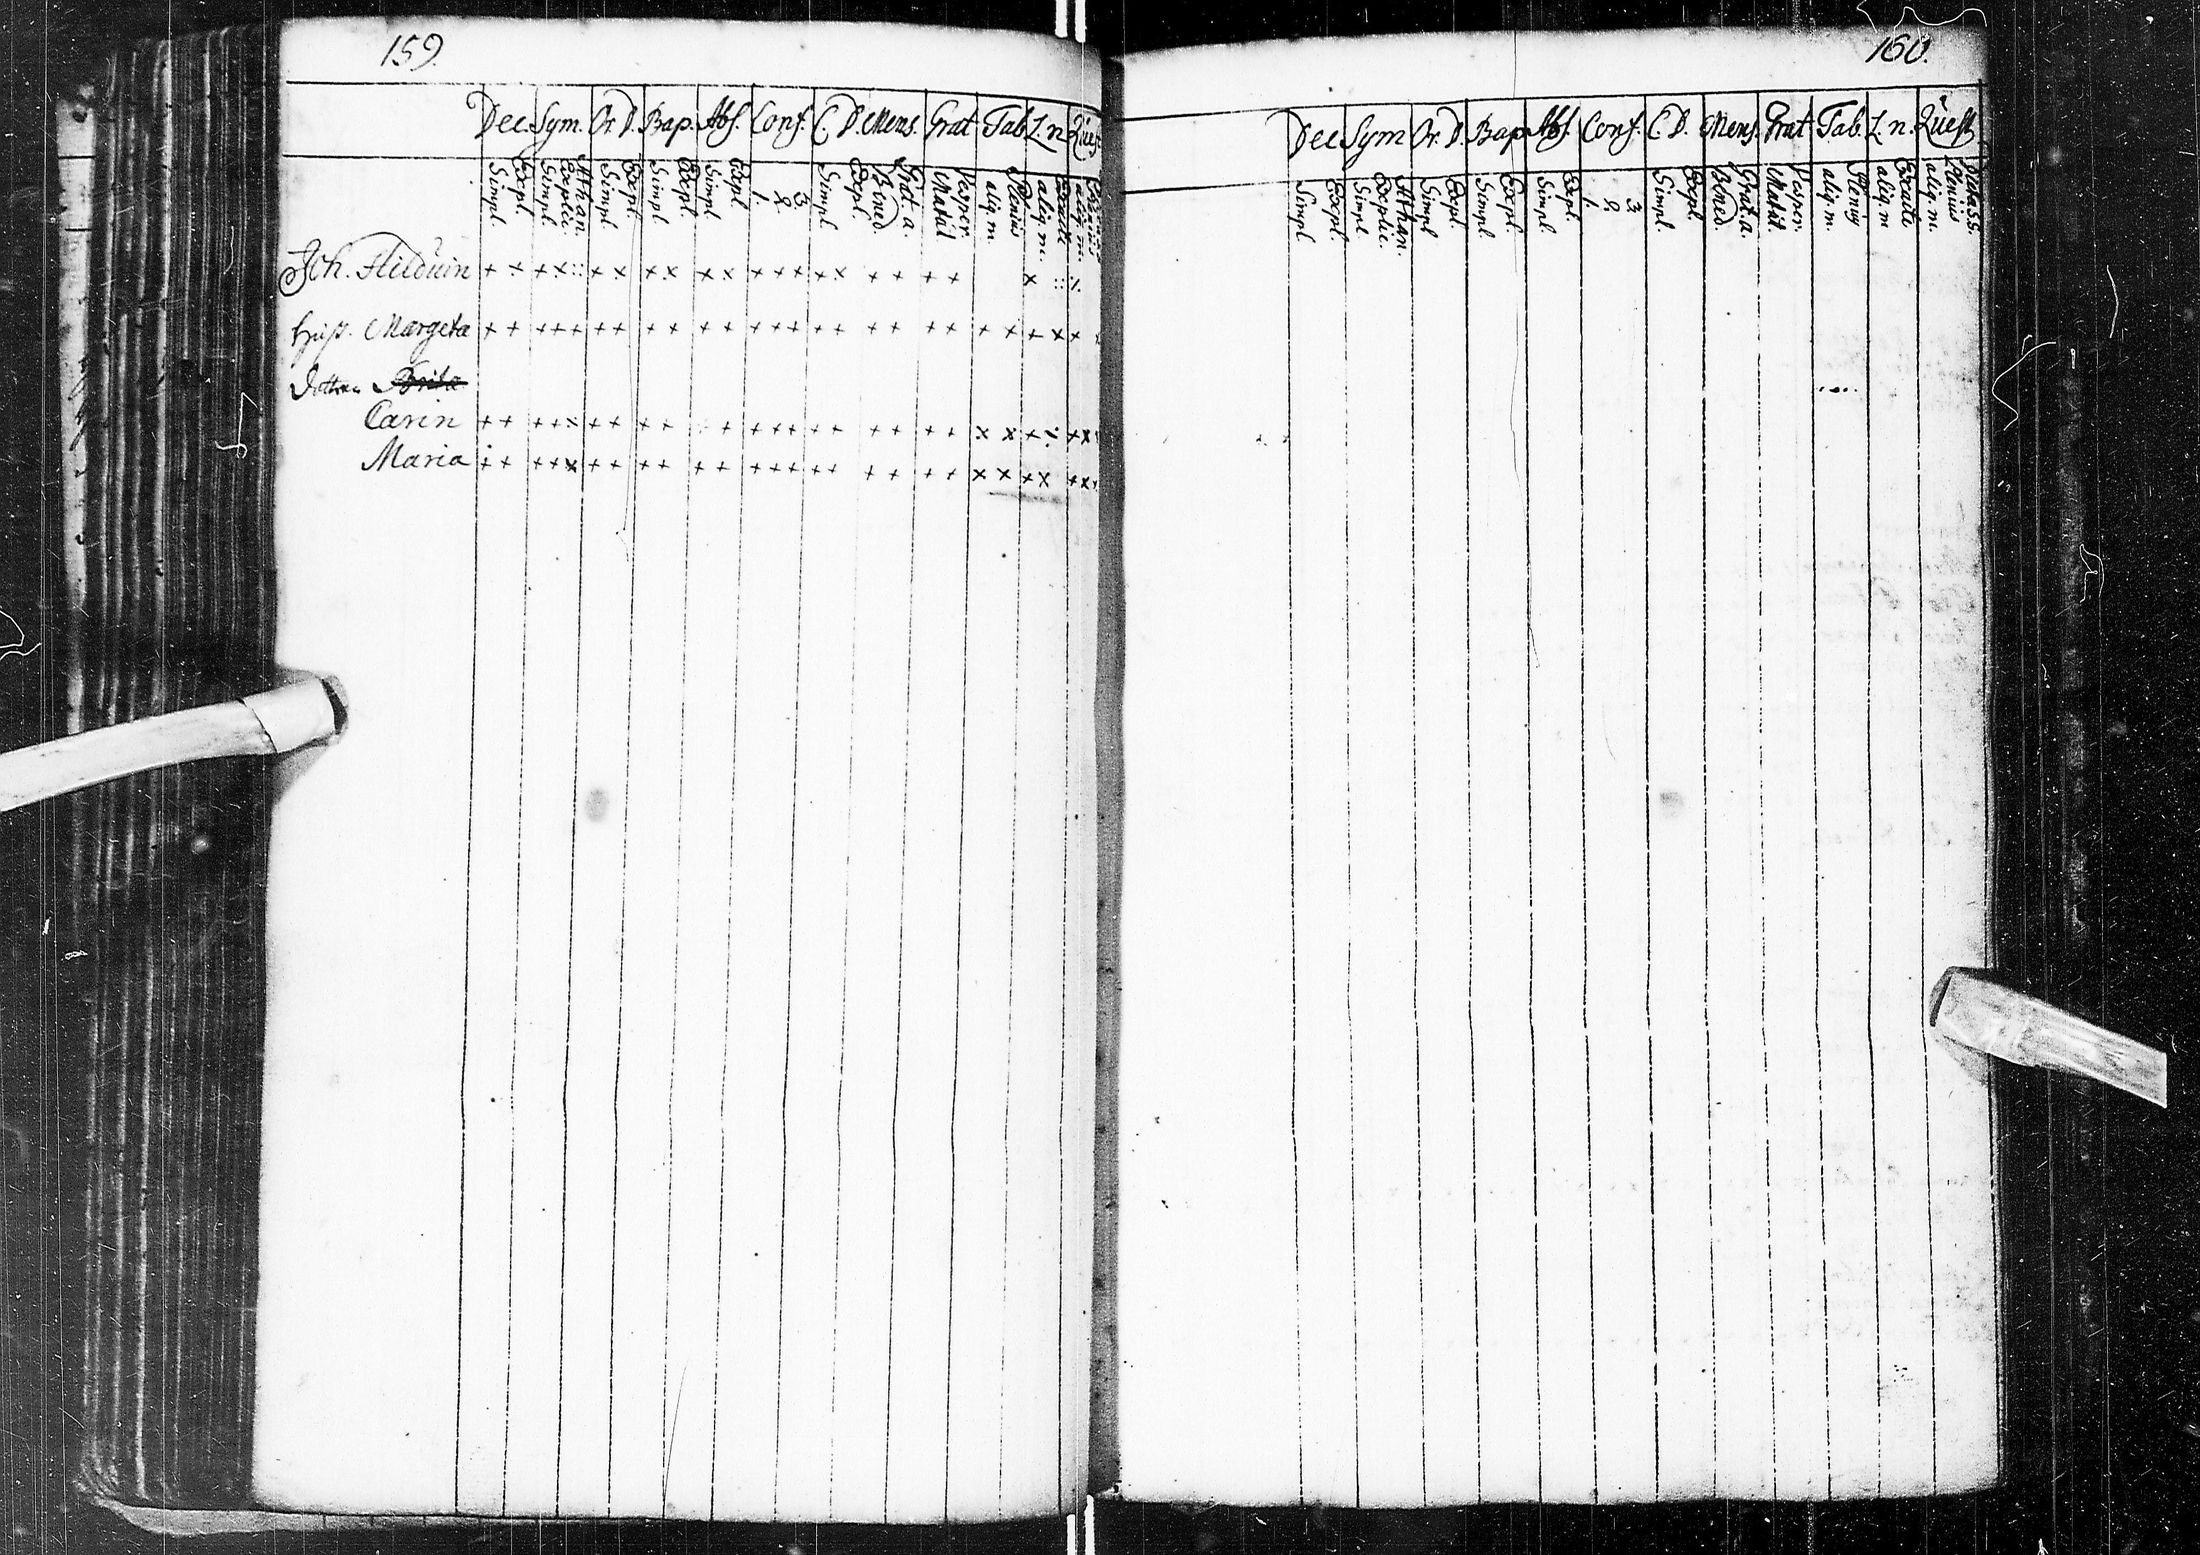 159.
Dec. Sym. Or. D. Bap. Abs. Conf. C. D. Mens. Grat Tab. L. n. Quest.
Simpl. Expl. Simpl. Explic. Athan. Simpl. Expl. Simpl. Expl. Simpl. Expl. 1. 2. 3. Simpl. Expl. Bened. Grat. a. Matut. Vesper. aliq. m. Plenius aliq. m. Exacte aliq. m. Plenius
Joh. Flilduin + + + x :: + x + x x x + + + + x + + + + x :: ⁒
hust. Margeta + + + + + + + + + + + + + + + + + + + + + + x + x + x
Dottrar Brita
Carin + + + + x + + + + + + + + + + + + + + + x x + ⁒ + x
Maria + + + + x + + + + + + + + + + + + + + + x x + x + x +
160.
Dec Sym Or. D. Bap. Abs. Conf. C. D. Mens. Grat Tab. L. n. Quest
Simpl. Expl. Simpl. Explic. Athan. Simpl Expl. Simpl. Expl. Simpl. Expl. 1. 2. 3 Simpl. Expl. Bened. Grat. a. Matut. Vesper. aliq. m. Pleniq aliq. m Exacte aliq. m. Plenius